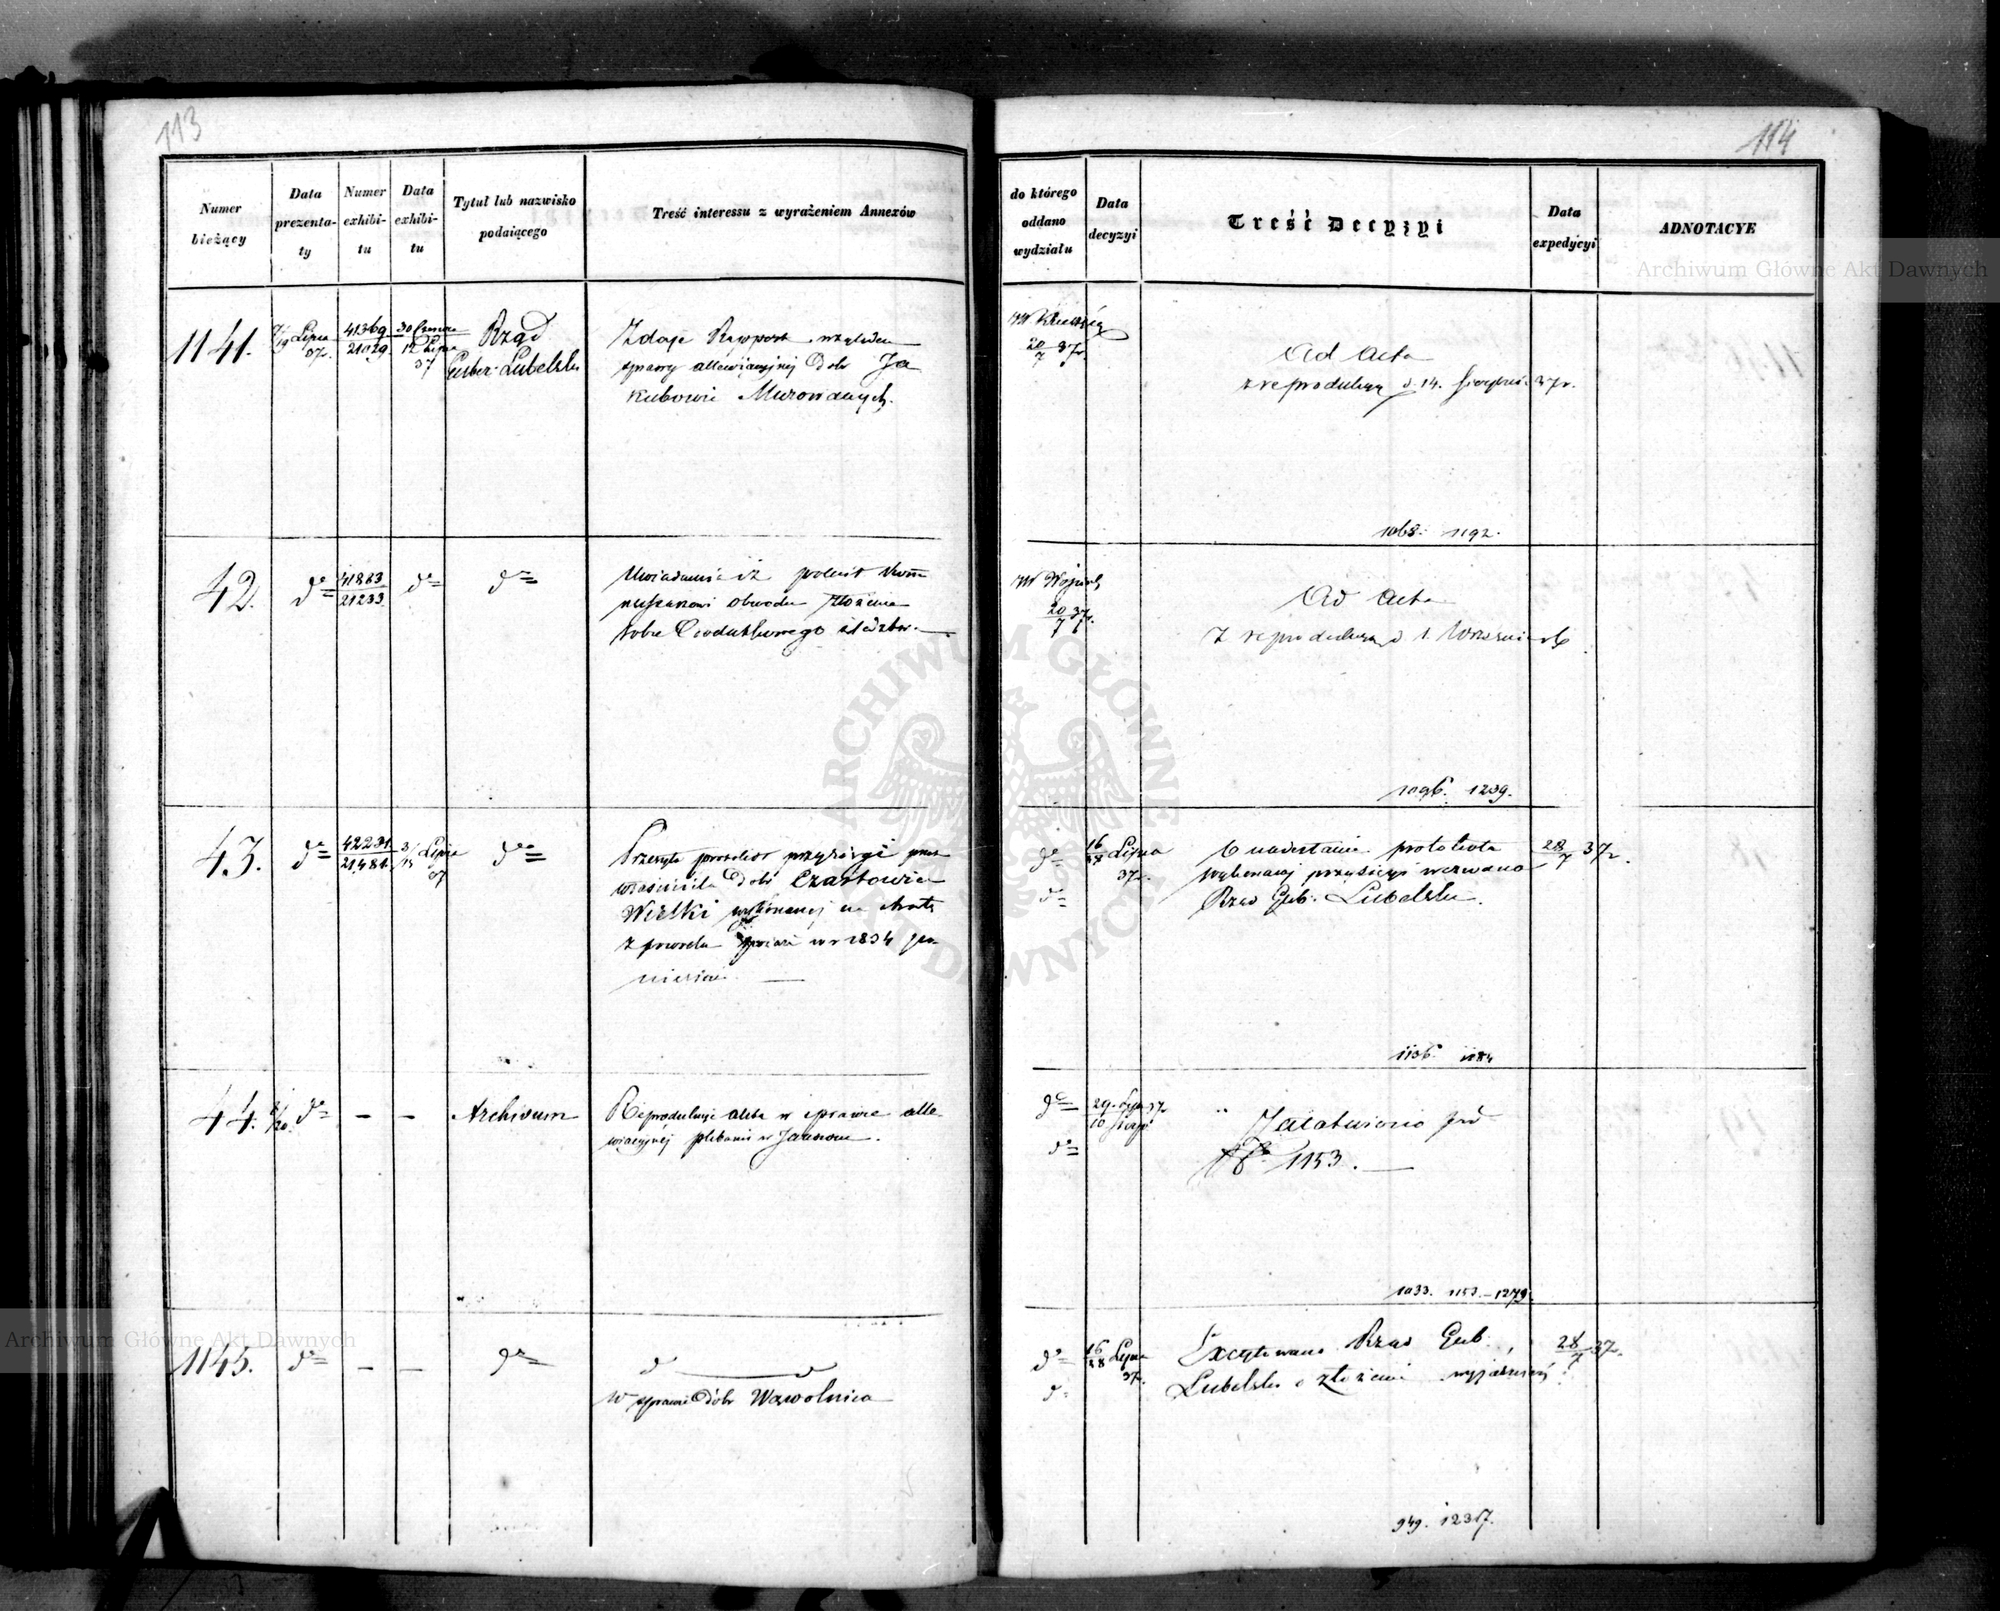 113
Numer
bieżący
Data
prezenta-
ty
Numer
exhibi-
tu
Data
exhibi-
tu
Tytuł lub nazwisko
podaiącego
Treść interessu z wyrażeniem Annexów
1141.
7/19 Lipca
37r.
41369
21029
30 Czerwca
12 Lipca
37
Rząd
Guber: Lubelski
Zdaje Rapport względem
sprawy allewiacyjnej Dobr Ja
kubowic Murowanych.
42.
d°
41883
21233
d°
d°
Uwiadamia iż polecił
obwodu złożenie
43.
d°
42231
21481
3/15 Lipca
37
d°
Przesyła protokół przysięgi przez
właściciela Dobr Czasławice
Wielki wykonanej na straty
z powodu w r 1834 po
niesione
44.
8/20
d°
–
–
Archiwum
Reprodukuje akta w sprawie alle-
wiacyjnej plebanii w Janowie.
1145.
d°
–
–
d°
d° d°
w sprawie Dóbr Wąwolnica
114
do którego
oddano
wydziału
Data
decyzyi
Treść Decyzyi
Data
expedycyi
ADNOTACYE
20/7 37r.
Ad Acta
z reprodukcyą d. 14. Sierpnia 37r.
1068. 1192.
20/7 37r.
Ad Acta
z reprodukcyą d 1 Września
1096. 1239.
d°
d°
16/28 Lipca
37r.
O nadesłanie protokołu
wykonanej przysięgi wezwano
Rząd Gub: Lubelski.
28/7 37r.
1136. 1184
d°
d°
29. Lipca 37
10 Sierp
Załatwiono pod
N° 1153.
1033. 1153. – 1279.
d°
d°
16/28 Lipca
37r.
Excytowano Rząd Gub:
Lubelski o złożenie wyjaśnień
28/7 37r.
949. 1237.
Archiwum Główne Akt Dawnych
Archiwum Główne Akt Dawnych
ARCHIWUM GŁÓWNE
AKT DAWNYCH